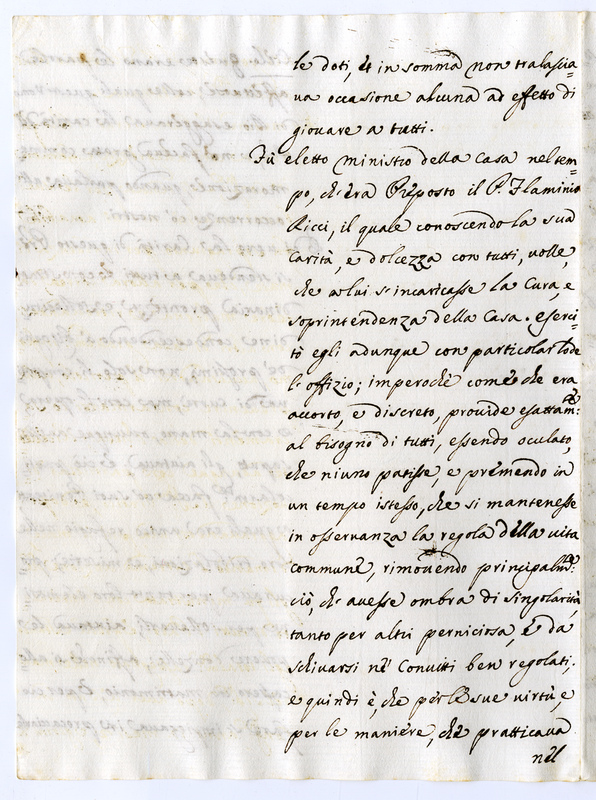 le doti, et in somma non tralascia=
va occasione alcuna ad effetto di
giovare a tutti.
Fù eletto ministro della Casa nel tem=
po, ch'era Preposto il P. Flaminio
Ricci, il quale conoscendo la sua
Carità, e dolcezza con tutti, volle,
che a lui s'incaricasse la Cura, e
soprintendenza della Casa. eserci=
tò egli adunque con particolar lode
l'offizio; imperochè come che era
accorto, e discreto, provide esattam:te
al bisogno di tutti, essendo oculato,
che niuno patisse, e premendo in
un tempo istesso, che si mantenesse
in osservanza la regola della vita
commune, rimovendo principalm:te
ciò, ch'avesse ombra di singolarità,
tanto per altri perniciosa, e da
schivarsi ne' Convitti ben regolati;
e quindi è, che per le sue virtù, e
per le maniere, che pratticava
nel